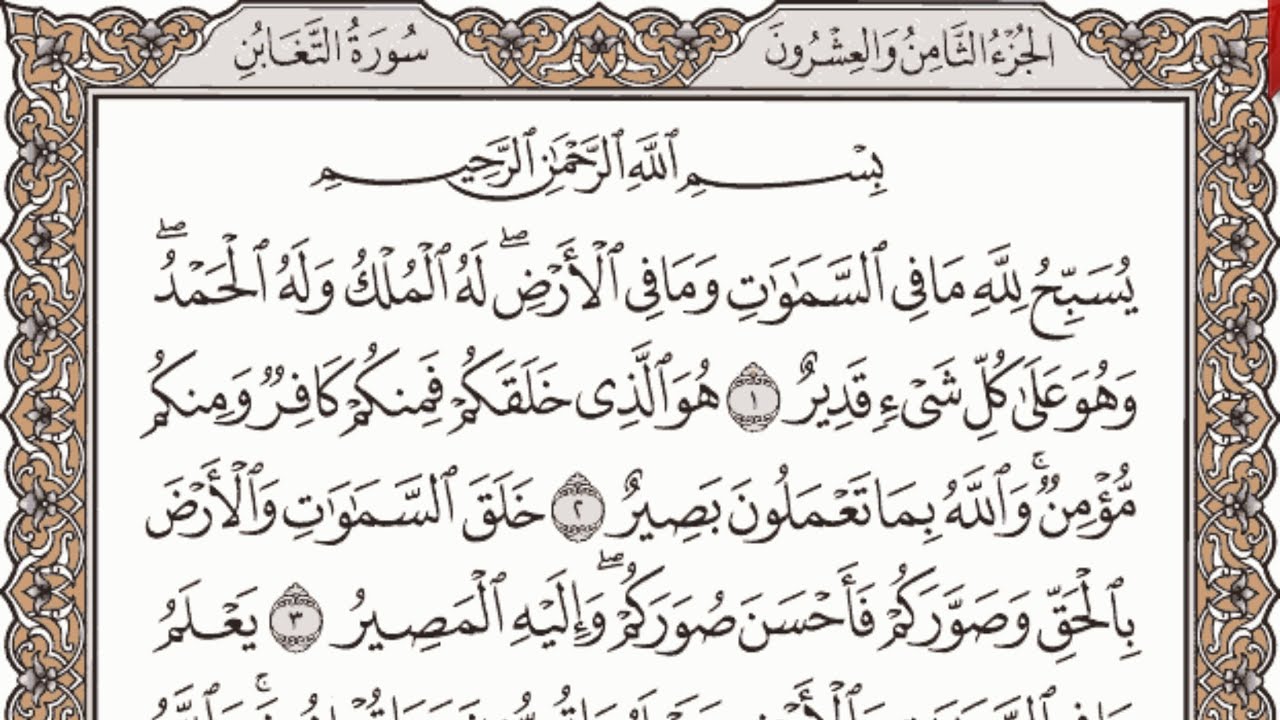 الجُزْءُ الثَّامِنُ وَالعِشْرُونَ
سُورَةُ التَّغَابُنِ
بِسْمِ ٱللَّهِ ٱلرَّحْمَٰنِ ٱلرَّحِيمِ
يُسَبِّحُ لِلَّهِ مَا فِى ٱلسَّمَٰوَٰتِ وَمَا فِى ٱلْأَرْضِۖ لَهُ ٱلْمُلْكُ وَلَهُ ٱلْحَمْدُۖ
وَهُوَ عَلَىٰ كُلِّ شَىْءٍ قَدِيرٌ ١ هُوَ ٱلَّذِى خَلَقَكُمْ فَمِنكُمْ كَافِرٌ وَمِنكُم
مُّؤْمِنٌۚ وَٱللَّهُ بِمَا تَعْمَلُونَ بَصِيرٌ ٢ خَلَقَ ٱلسَّمَٰوَٰتِ وَٱلْأَرْضَ
بِٱلْحَقِّ وَصَوَّرَكُمْ فَأَحْسَنَ صُوَرَكُمْۖ وَإِلَيْهِ ٱلْمَصِيرُ ٣ يَعْلَمُ